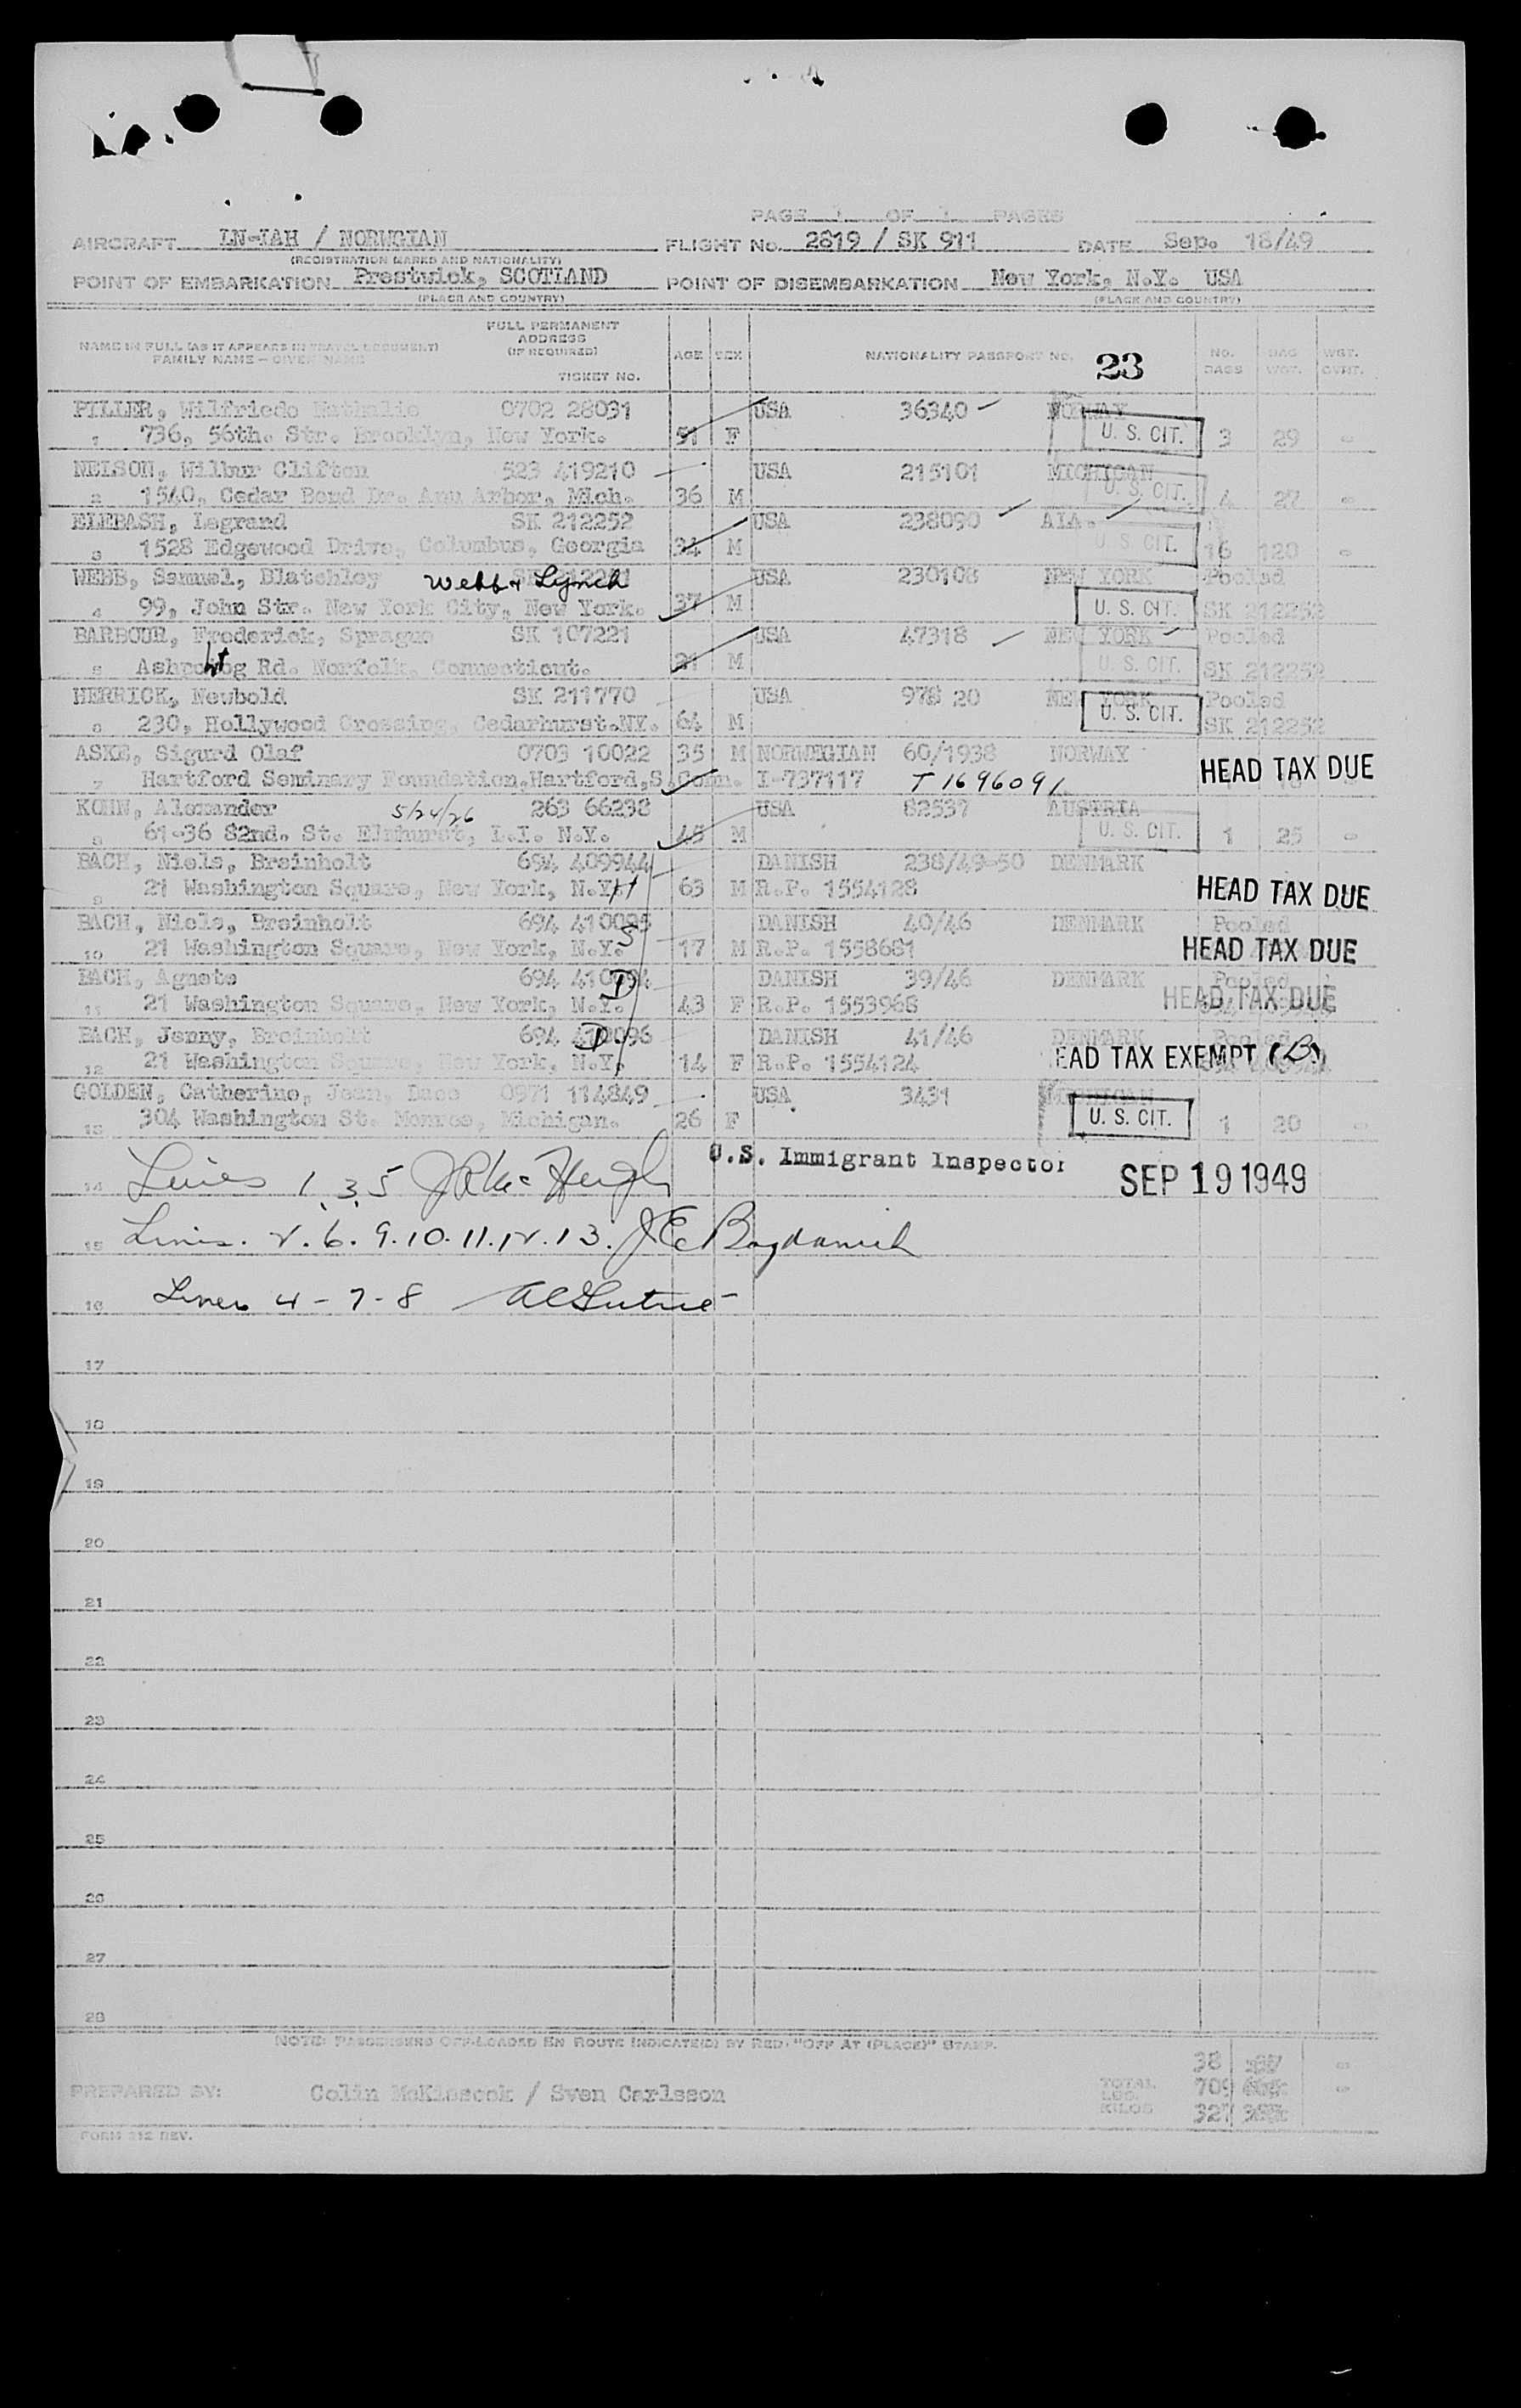 PAGE 1 OF 1 PAGES
AIRCRAFT LN-IAH / NORWGIAN FLIGHT No. 2819 / SK 911 DATE Sep. 18/49
(REGISTRATION MARKS AND NATIONALITY)
POINT OF EMBARKATION Prestwick, SCOTLAND POINT OF DISEMBARKATION New York, N.Y. USA
(PLACE AND COUNTRY) (PLACE AND COUNTRY)
NAME IN FULL (AS IT APPEARS IN TRAVEL DOCUMENT) FAMILY NAME — GIVEN NAME FULL PERMANENT ADDRESS (IF REQUIRED) TICKET No. AGE SEX NATIONALITY PASSPORT NO. 23 NO. BAGS BAG WGT. WGT. OVRT.
PILLER, Wilfriede Nathalie 0702 28031 USA 36340 NORWAY
1 736, 56th. Str. Brooklyn, New York. 51 F U. S. CIT. 3 29 0
NELSON, Wilbur Clifton 523 419210 USA 215101 MICHIGAN
2 1540, Cedar Bend Dr. Ann Arbor, Mich. 36 M U. S. CIT. 4 27 0
ELEBASH, Legrand SK 212252 USA 238090 ALA.
3 1528 Edgewood Drive, Columbus, Georgia 34 M U. S. CIT. 16 120 0
WEBB, Samuel, Blatchley Webb & Lynch USA 230108 NEW YORK Pooled
4 99, John Str. New York City, New York. 37 M U. S. CIT. SK 212252
BARBOUR, Frederick, Sprague SK 107221 USA 47318 NEW YORK Pooled
5 Rd. Norfolk, Connecticut. 21 M U. S. CIT. SK 212252
HERRICK, Newbold SK 211770 USA 978 20 NEW YORK Pooled
6 230, Hollywood Crossing, Cedarhurst.NY. 64 M U. S. CIT. SK 212252
ASKE, Sigurd Olaf 0703 10022 35 M NORWEGIAN 60/1938 NORWAY
7 Hartford Seminary Foundation,Hartford,S.Conn. I-737117 T 1696091 HEAD TAX DUE
KOHN, Alexander 5/24/26 263 66238 USA 82537 AUSTRIA
8 61-36 82nd. St. Elmhurst, L.I. N.Y. 45 M U. S. CIT. 1 25 0
BACH, Niels, Breinholt 694 409944 DANISH 238/49-50 DENMARK
9 21 Washington Square, New York, N.Y. H 63 M R.P. 1554128 HEAD TAX DUE
BACH, Niels, Breinholt 694 410095 DANISH 40/46 DENMARK Pooled
10 21 Washington Square, New York, N.Y. S 17 M R.P. 1558681 HEAD TAX DUE
BACH, Agnete 694 410094 DANISH 39/46 DENMARK Pooled
11 21 Washington Square, New York, N.Y. D 43 F R.P. 1553968 HEAD TAX DUE
BACH, Jenny, Breinholt 694 410096 D DANISH 41/46 DENMARK Pooled
12 21 Washington Square, New York, N.Y. 14 F R.P. 1554124 EAD TAX EXEMPT (B)
GOLDEN, Catherine, Jean, 0971 114849 USA 3431 MICHIGAN
13 304 Washington St. Monroe, Michigan. 26 F U. S. CIT. 1 20 0
U.S. Immigrant Inspector
14 Lines 1, 3, 5 SEP 19 1949
15 Lines. 2. 6. 9. 10. 11. 12. 13. J E Bogdanich
16 Lines 4 - 7 - 8
17
18
19
20
21
22
23
24
25
26
27
28
NOTE: PASSENGERS OFF-LOADED EN ROUTE INDICATE(D) BY RED. "OFF AT (PLACE)" STAMP.
38 0
PREPARED BY: Colin / Sven Carlsson TOTAL LBS. KILOS 709 0
327
FORM 112 REV.